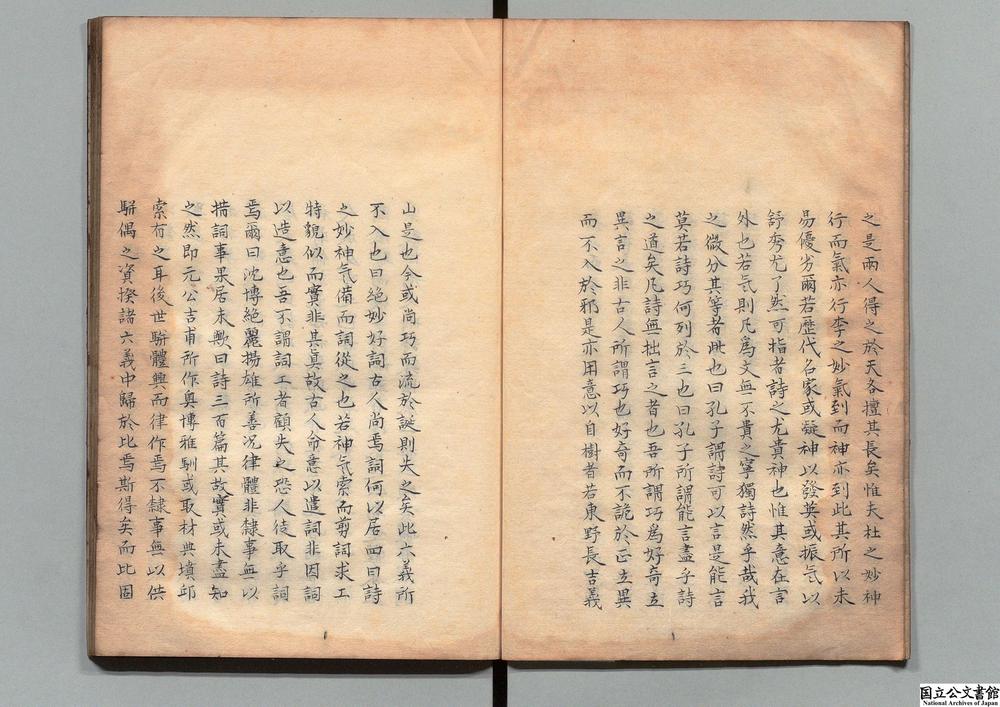 之是兩人得之於天各擅其長矣惟夫杜之妙神
行而氣亦行李之妙氣到而神亦到此其所以未
易優劣爾若歷代名家或凝神以發英或振气以
舒秀尤了然可指者詩之尤貴神也惟其意在言
外也若气則凡爲文無不貴之寧獨詩然乎哉我
之微分其等者此也曰孔子謂詩可以言是能言
莫若詩巧何列於三也曰孔子所謂能言盡乎詩
之道矣凡詩無拙言之者也吾所謂巧爲好奇立
異言之非古人所謂巧也好奇而不詭於正立異
而不入於邪是亦用意以自樹者若東野長吉義
山是也今或尚巧而流於誕則失之矣此六義所
不入也曰絕妙好詞古人尚焉詞何以居四曰詩
之妙神气備而詞從之也若神气索而剪詞求工
特貌似而實非其真故古人命意以遣詞非因詞
以造意也吾不謂詞工者顧失之恐人徒取乎詞
焉爾曰沈博絕麗揚雄所善况律體非隸事無以
措詞事果居末歟曰詩三百篇其故實或未盡知
之然即元公吉甫所作奧博雅馴或取材典墳邱
索有之耳後世駢體興而律作焉不隸事無以供
駢偶之資揆諸六義中歸於比焉斯得矣而比固
国立公文書館
National Archives of Japan